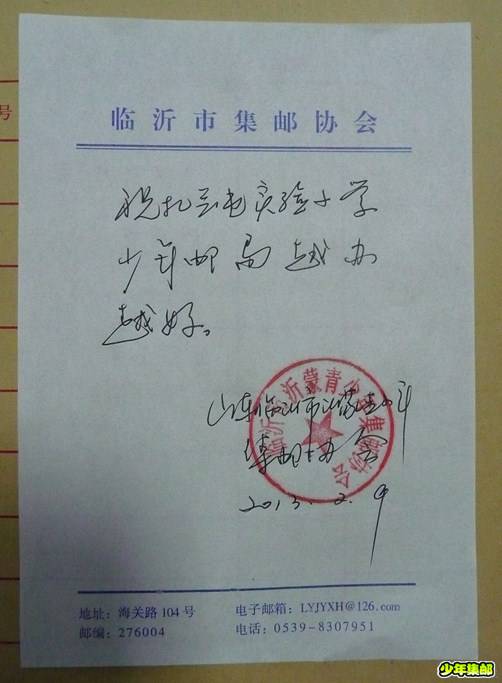 号
临沂市集邮协会
祝扎兰屯实验小学
少年邮局越办
越好。
山东临沂市沂蒙青少年
集邮协会
2013.2.9
临沂市沂蒙青少年集邮协会
地址：海关路104号 电子邮箱：LYJYXH@126.com
邮编：276004 电话：0539-8307951
少年集邮